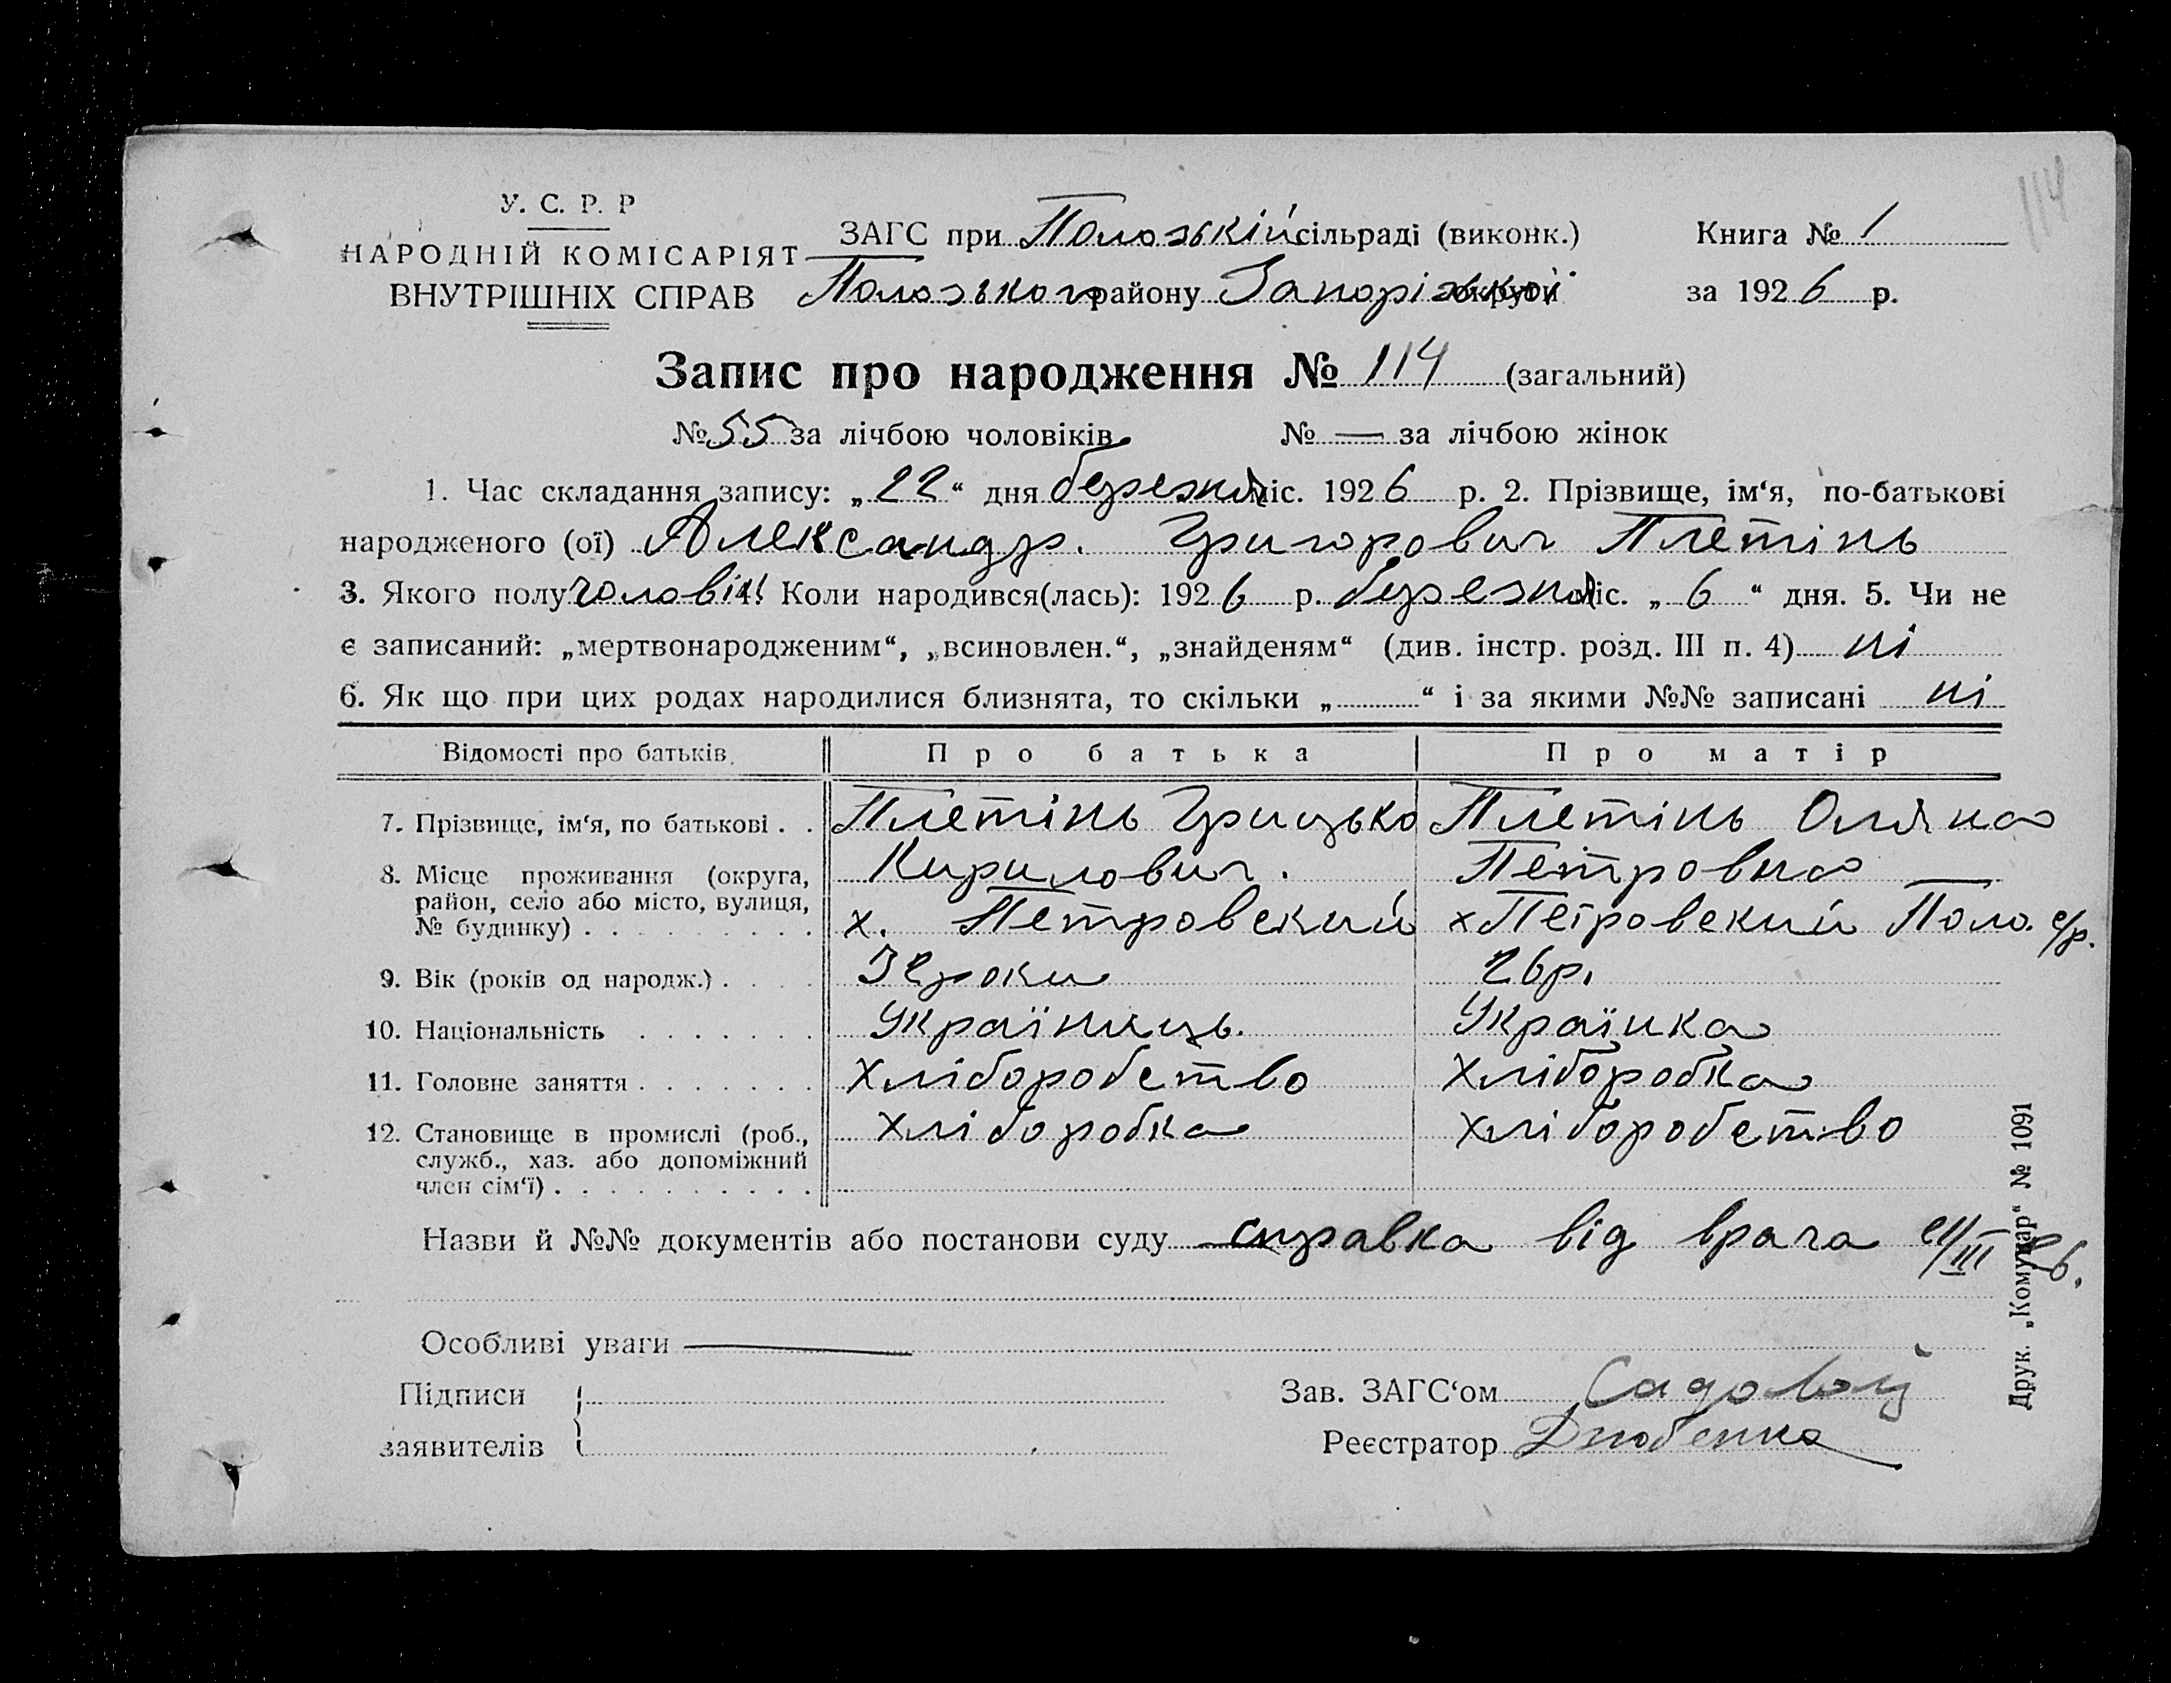 114
У. С. Р. Р
НАРОДНІЙ КОМІСАРІЯТ
ВНУТРІШНІХ СПРАВ
ЗАГС при Пологській сільраді (виконк.) Книга № 1
Пологського району Запорізької округи за 1926 р.
Запис про народження № 114 (загальний)
№ 55 за лічбою чоловіків № — за лічбою жінок
1. Час складання запису: „22“ дня березня міс. 1926 р. 2. Прізвище, ім‘я, по-батькові
народженого (ої) Александр. Григорович Плетінь
3. Якого полу чоловіч. 4. Коли народився(лась): 1926 р. березня міс. „6“ дня. 5. Чи не
є записаний: „мертвонародженим“, „всиновлен.“, „знайденям“ (див. інстр. розд. III п. 4) ні
6. Як що при цих родах народилися близнята, то скільки „ “ і за якими №№ записані ні
Відомості про батьків. Про батька Про матір
7. Прізвище, ім‘я, по батькові . . Плетінь Грицько Плетінь Оляна
Кирилович. Петровна
8. Місце проживання (округа,
район, село або місто, вулиця,
№ будинку) . х. Петровский х Петровский Поло. с/р.
9. Вік (років од народж.) . 32 роки 26 р.
10. Національність . Українець. Українка
11. Головне заняття . Хліборобство Хліборобка
12. Становище в промислі (роб., хліборобка хліборобство
служб., хаз. або допоміжний
член сім‘ї) .
Назви й №№ документів або постанови суду справка від врача 21/III 26.
Особливі уваги —
Підписи Зав. ЗАГС‘ом Садовий
заявителів Реєстратор
Друк. „Комунар“ № 1091